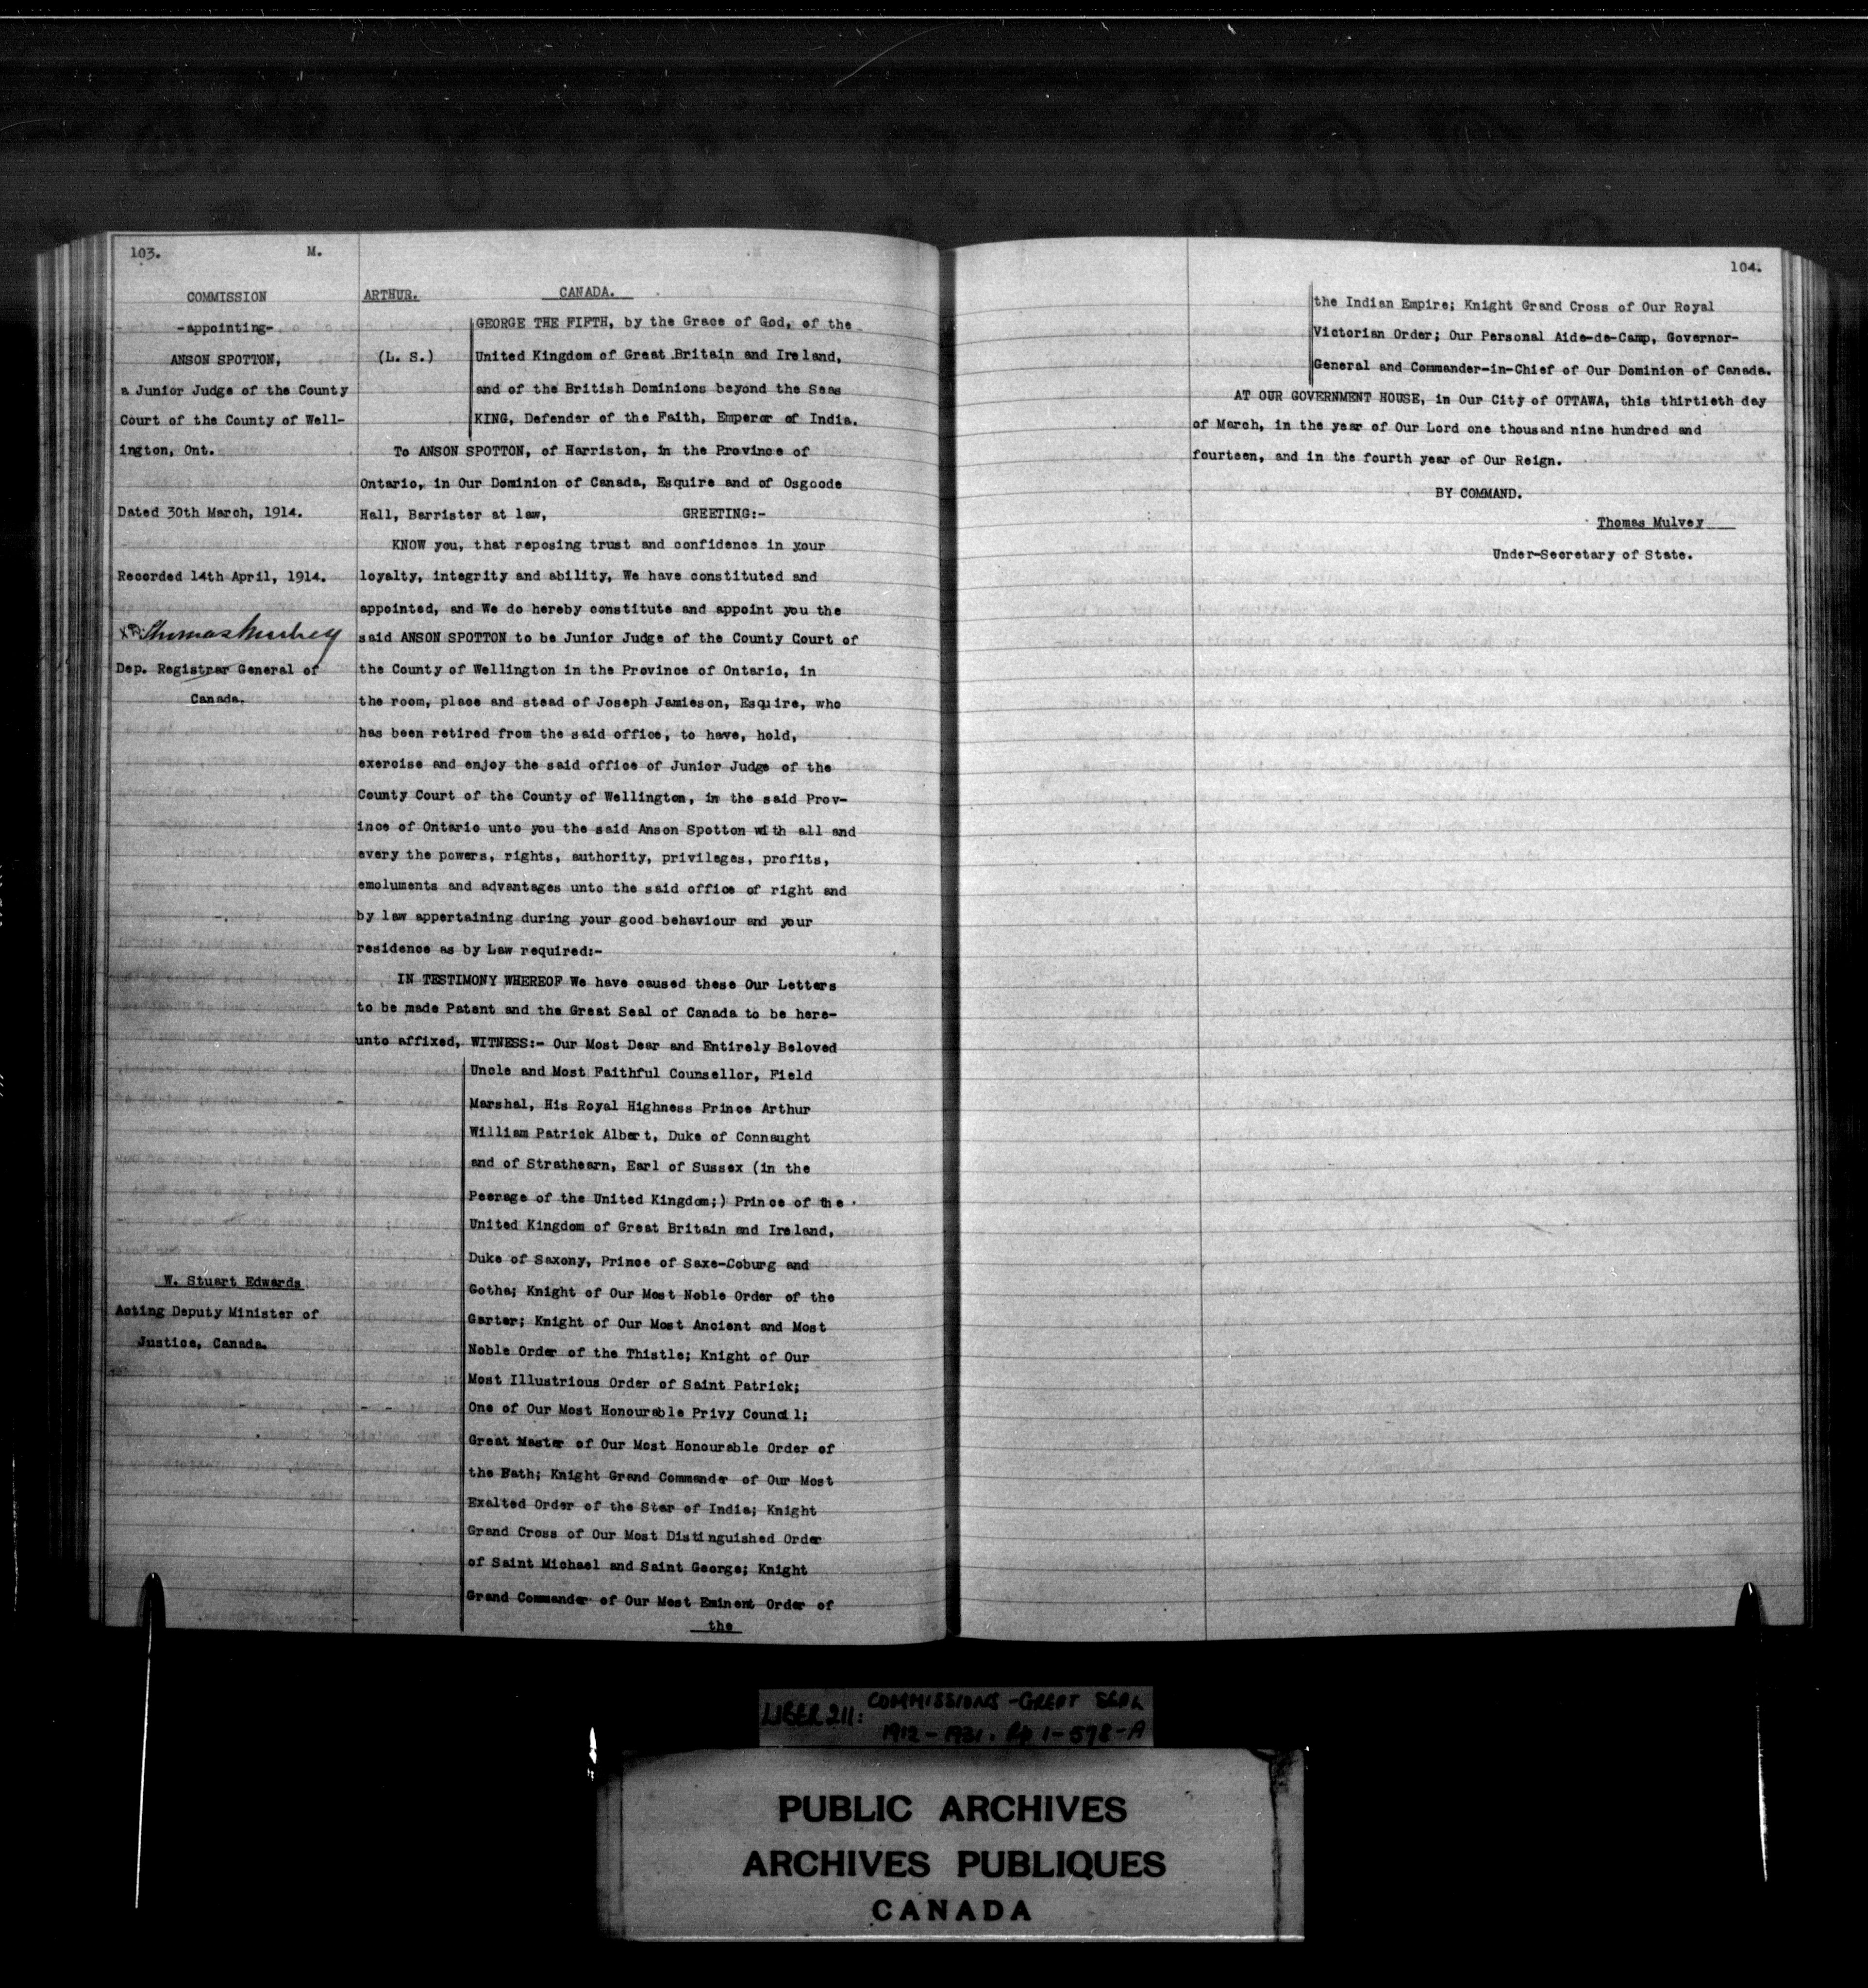 103.
M.
COMMISSION
-appointing-
ANSON SPOTTON,
a Junior Judge of the County
Court of the County of Well-
ington, Ont.
Dated 30th March, 1914.
Recorded 14th April, 1914.
Thomas Mulvey
Dep. Registrar General of
Canada.
W. Stuart Edwards
Acting Deputy Minister of
Justice, Canada.
ARTHUR.
CANADA.
(L. S.)
GEORGE THE FIFTH, by the Grace of God, of the
United Kingdom of Great Britain and Ireland,
and of the British Dominions beyond the Seas
KING, Defender of the Faith, Emperor of India.
To ANSON SPOTTON, of Harriston, in the Province of
Ontario, in Our Dominion of Canada, Esquire and of Osgoode
Hall, Barrister at law, GREETING:-
KNOW you, that reposing trust and confidence in your
loyalty, integrity and ability, We have constituted and
appointed, and We do hereby constitute and appoint you the
said ANSON SPOTTON to be Junior Judge of the County Court of
the County of Wellington in the Province of Ontario, in
the room, place and stead of Joseph Jamieson, Esquire, who
has been retired from the said office, to have, hold,
exercise and enjoy the said office of Junior Judge of the
County Court of the County of Wellington, in the said Prov-
ince of Ontario unto you the said Anson Spotton with all and
every the powers, rights, authority, privileges, profits,
emoluments and advantages unto the said office of right and
by law appertaining during your good behaviour and your
residence as by Law required:-
IN TESTIMONY WHEREOF We have caused these Our Letters
to be made Patent and the Great Seal of Canada to be here-
unto affixed, WITNESS:- Our Most Dear and Entirely Beloved
Uncle and Most Faithful Counsellor, Field
Marshal, His Royal Highness Prince Arthur
William Patrick Albert, Duke of Connaught
and of Strathearn, Earl of Sussex (in the
Peerage of the United Kingdom;) Prince of the
United Kingdom of Great Britain and Ireland,
Duke of Saxony, Prince of Saxe-Coburg and
Gotha; Knight of Our Most Noble Order of the
Garter; Knight of Our Most Ancient and Most
Noble Order of the Thistle; Knight of Our
Most Illustrious Order of Saint Patrick;
One of Our Most Honourable Privy Council;
Great Master of Our Most Honourable Order of
the Bath; Knight Grand Commander of Our Most
Exalted Order of the Star of India; Knight
Grand Cross of Our Most Distinguished Order
of Saint Michael and Saint George; Knight
Grand Commander of Our Most Eminent Order of
the
104.
the Indian Empire; Knight Grand Cross of Our Royal
Victorian Order; Our Personal Aide-de-Camp, Governor-
General and Commander-in-Chief of Our Dominion of Canada.
AT OUR GOVERNMENT HOUSE, in Our City of OTTAWA, this thirtieth day
of March, in the year of Our Lord one thousand nine hundred and
fourteen, and in the fourth year of Our Reign.
BY COMMAND.
Thomas Mulvey
Under-Secretary of State.
LIBER 211: COMMISSIONS - GREAT SEAL
1912 - 1931. Pp 1-578-A
PUBLIC ARCHIVES
ARCHIVES PUBLIQUES
CANADA